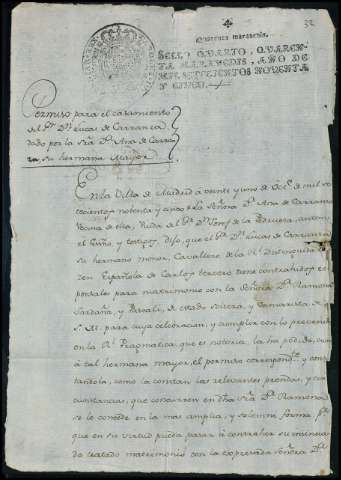 4
52
Quarenta maravedis.
SELLO QVARTO, QVAREN-
TA MARAVEDIS, AÑO DE
MIL SETECIENTOS NOVENTA
Y CINCO.
Permiso para el casamiento
del Sr. Dn. Lucas de Carranza
dado por la Sra. Da. Ana de Carran
za, su hermana Mayor
En la Villa de Madrid a veinte y uno de Oct.e de mil se
tecientos noventa y cinco la Señora Da. Ana de Carranza
vecina de ella, Viuda del Sr. Dn. de la Pedruera, ante mi
el Essno. y testigos, Dijo, que el Sr. Dn. Lucas de Carranza
su hermano menor, Cavallero de la Rl. Distinguida Or
den Española de Carlos tercero tiene contrahidos es
ponsales para matrimonio con la Señora Da. Ramona
de estado soltera, y Camarista de
S. M. para cuya celebracion, y cumplir con lo prevenido
en la Rl. Pragmatica que es notoria, la ha pedido, como
à tal hermana mayor, el permiso correspond.te y cons
tandola, como la constan las relevantes prendas, y cir
cunstancias, que concurren en dha Sra. Da. Ramona
se le concede en la mas amplia, y solemne forma pa.
que en su virtud pueda pasar à contraher su
tratado matrimonio con la expresada Señora Da.